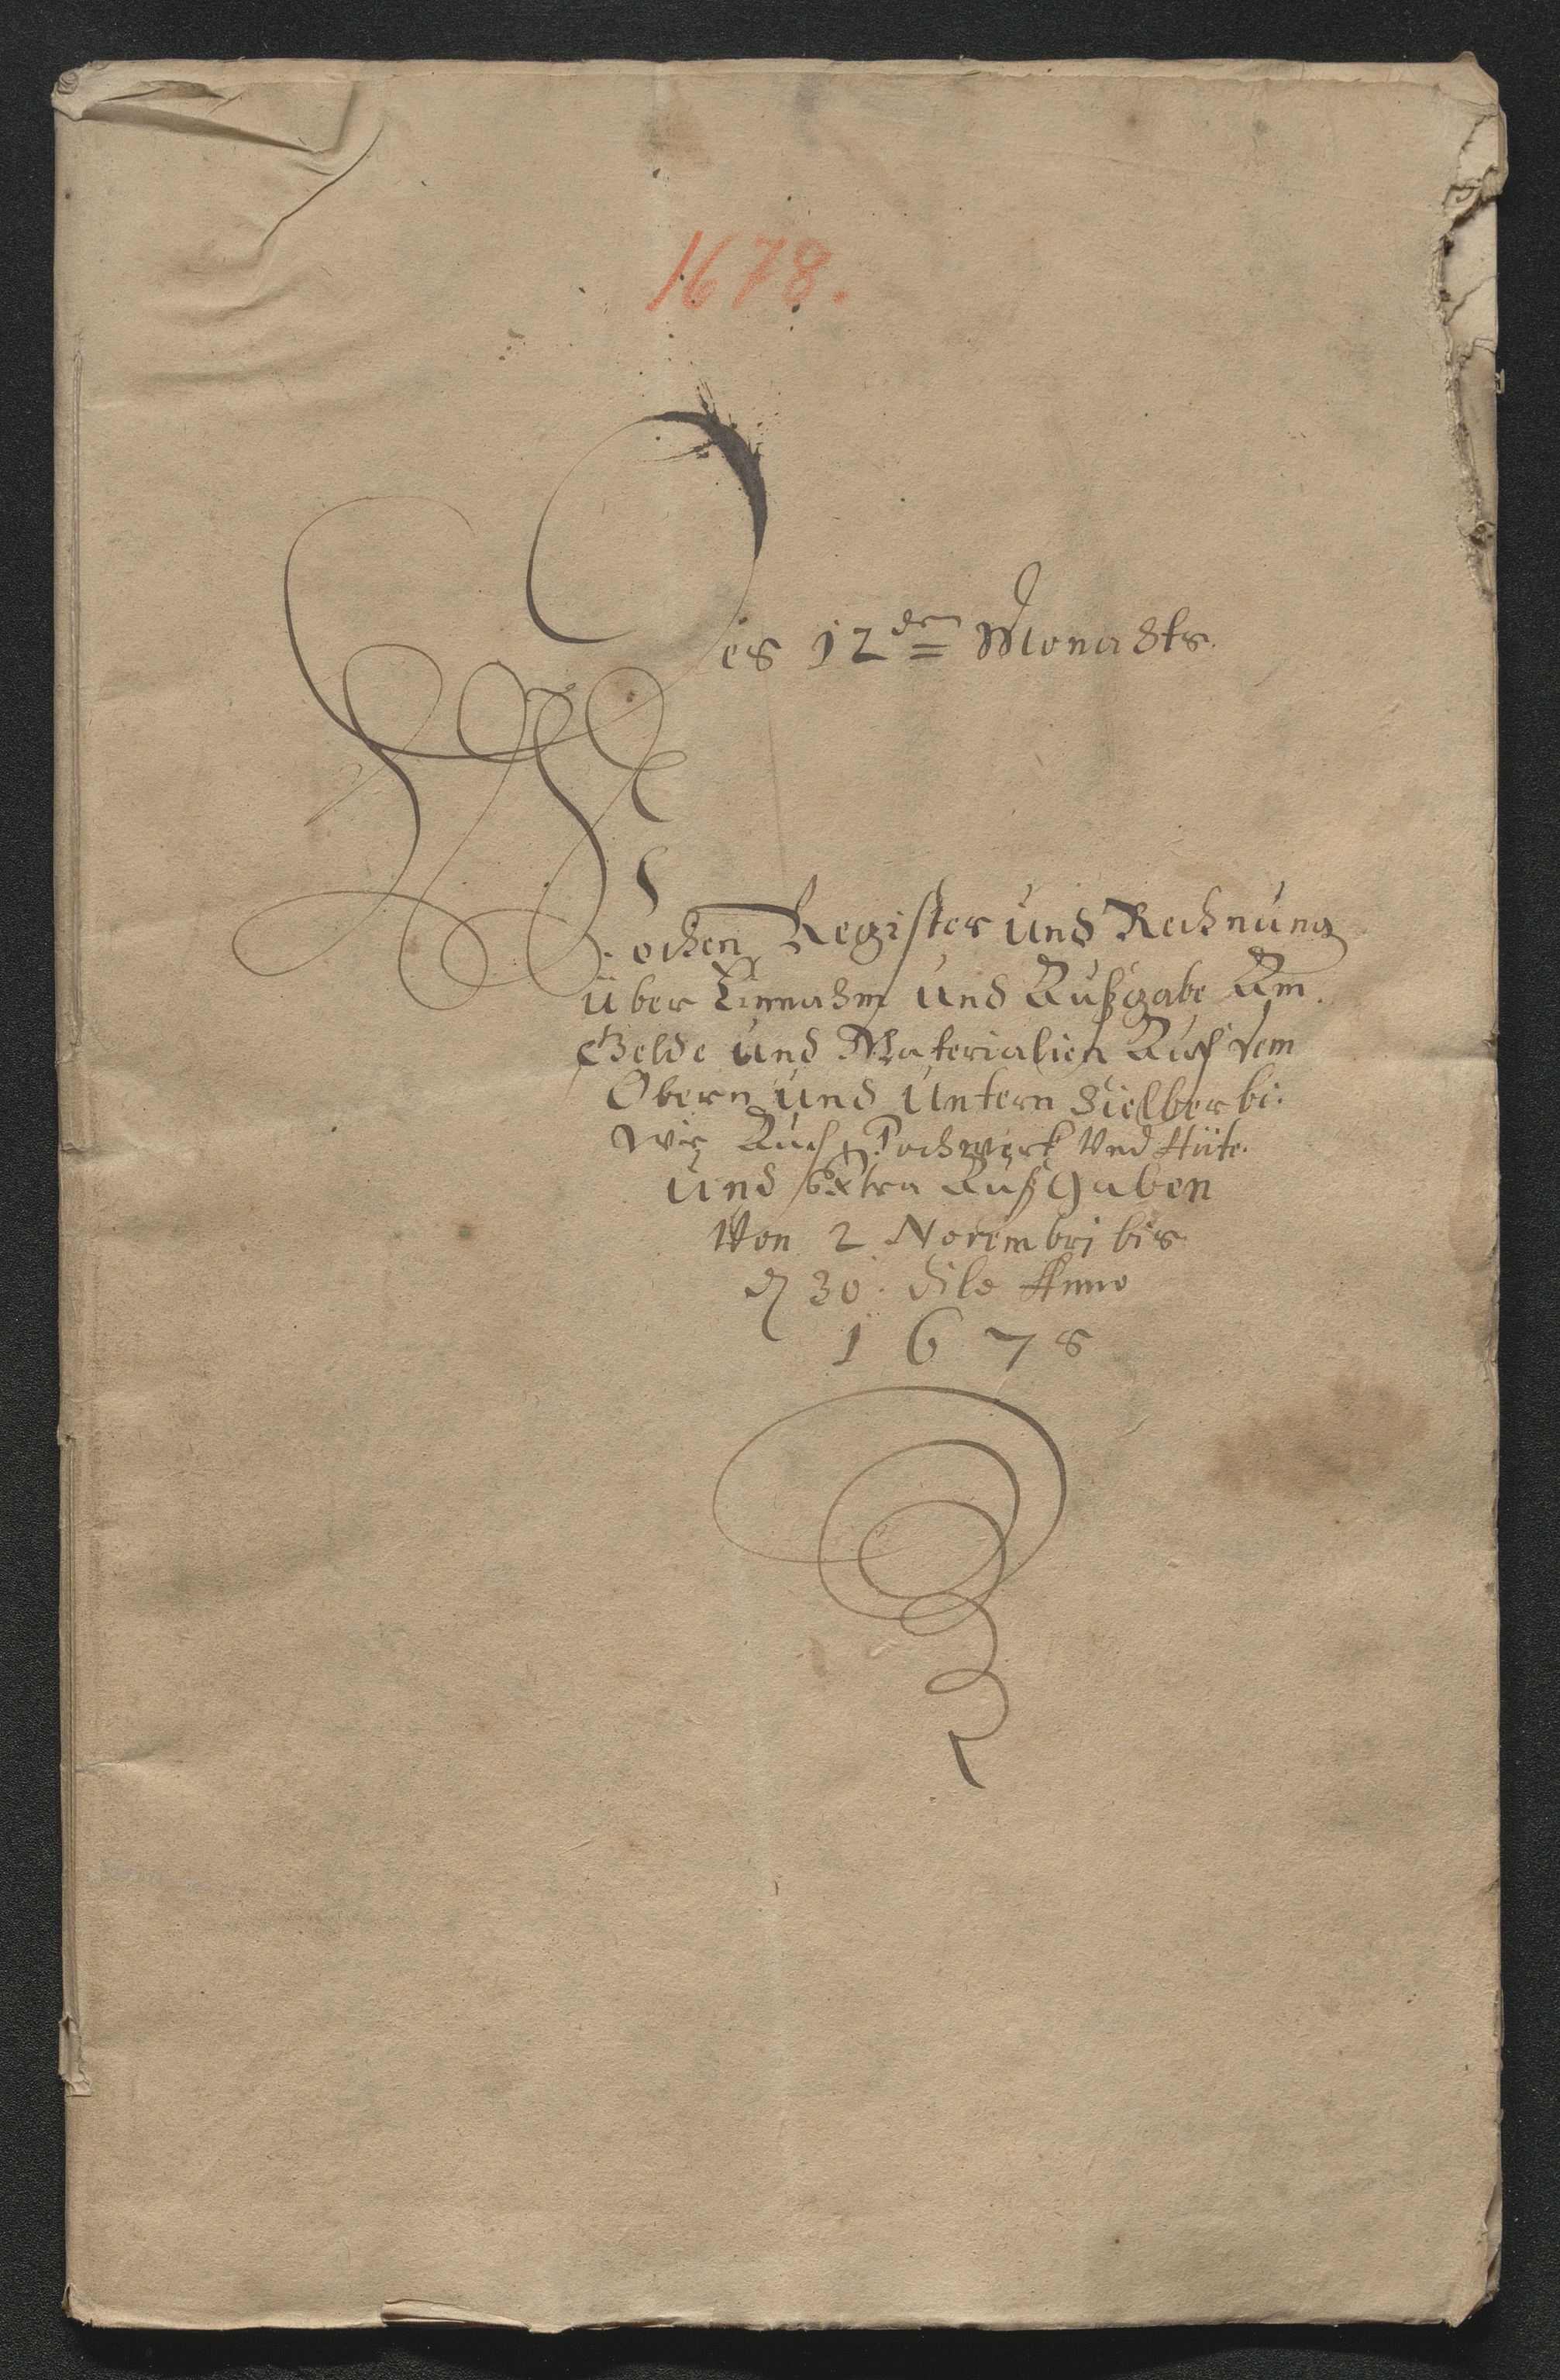 1678.
Des 12den Monadts.
Wochen Register und Rechnung
über Einnahm und Außgabe Am
Gelde und Materialien Auf dem
Obern und Untern Sielberbi.
Wie Auch Pochwerk Und Hüte.
und Extra Außgaben
Von 2 Novembri bis
d 30. dito Anno
1678